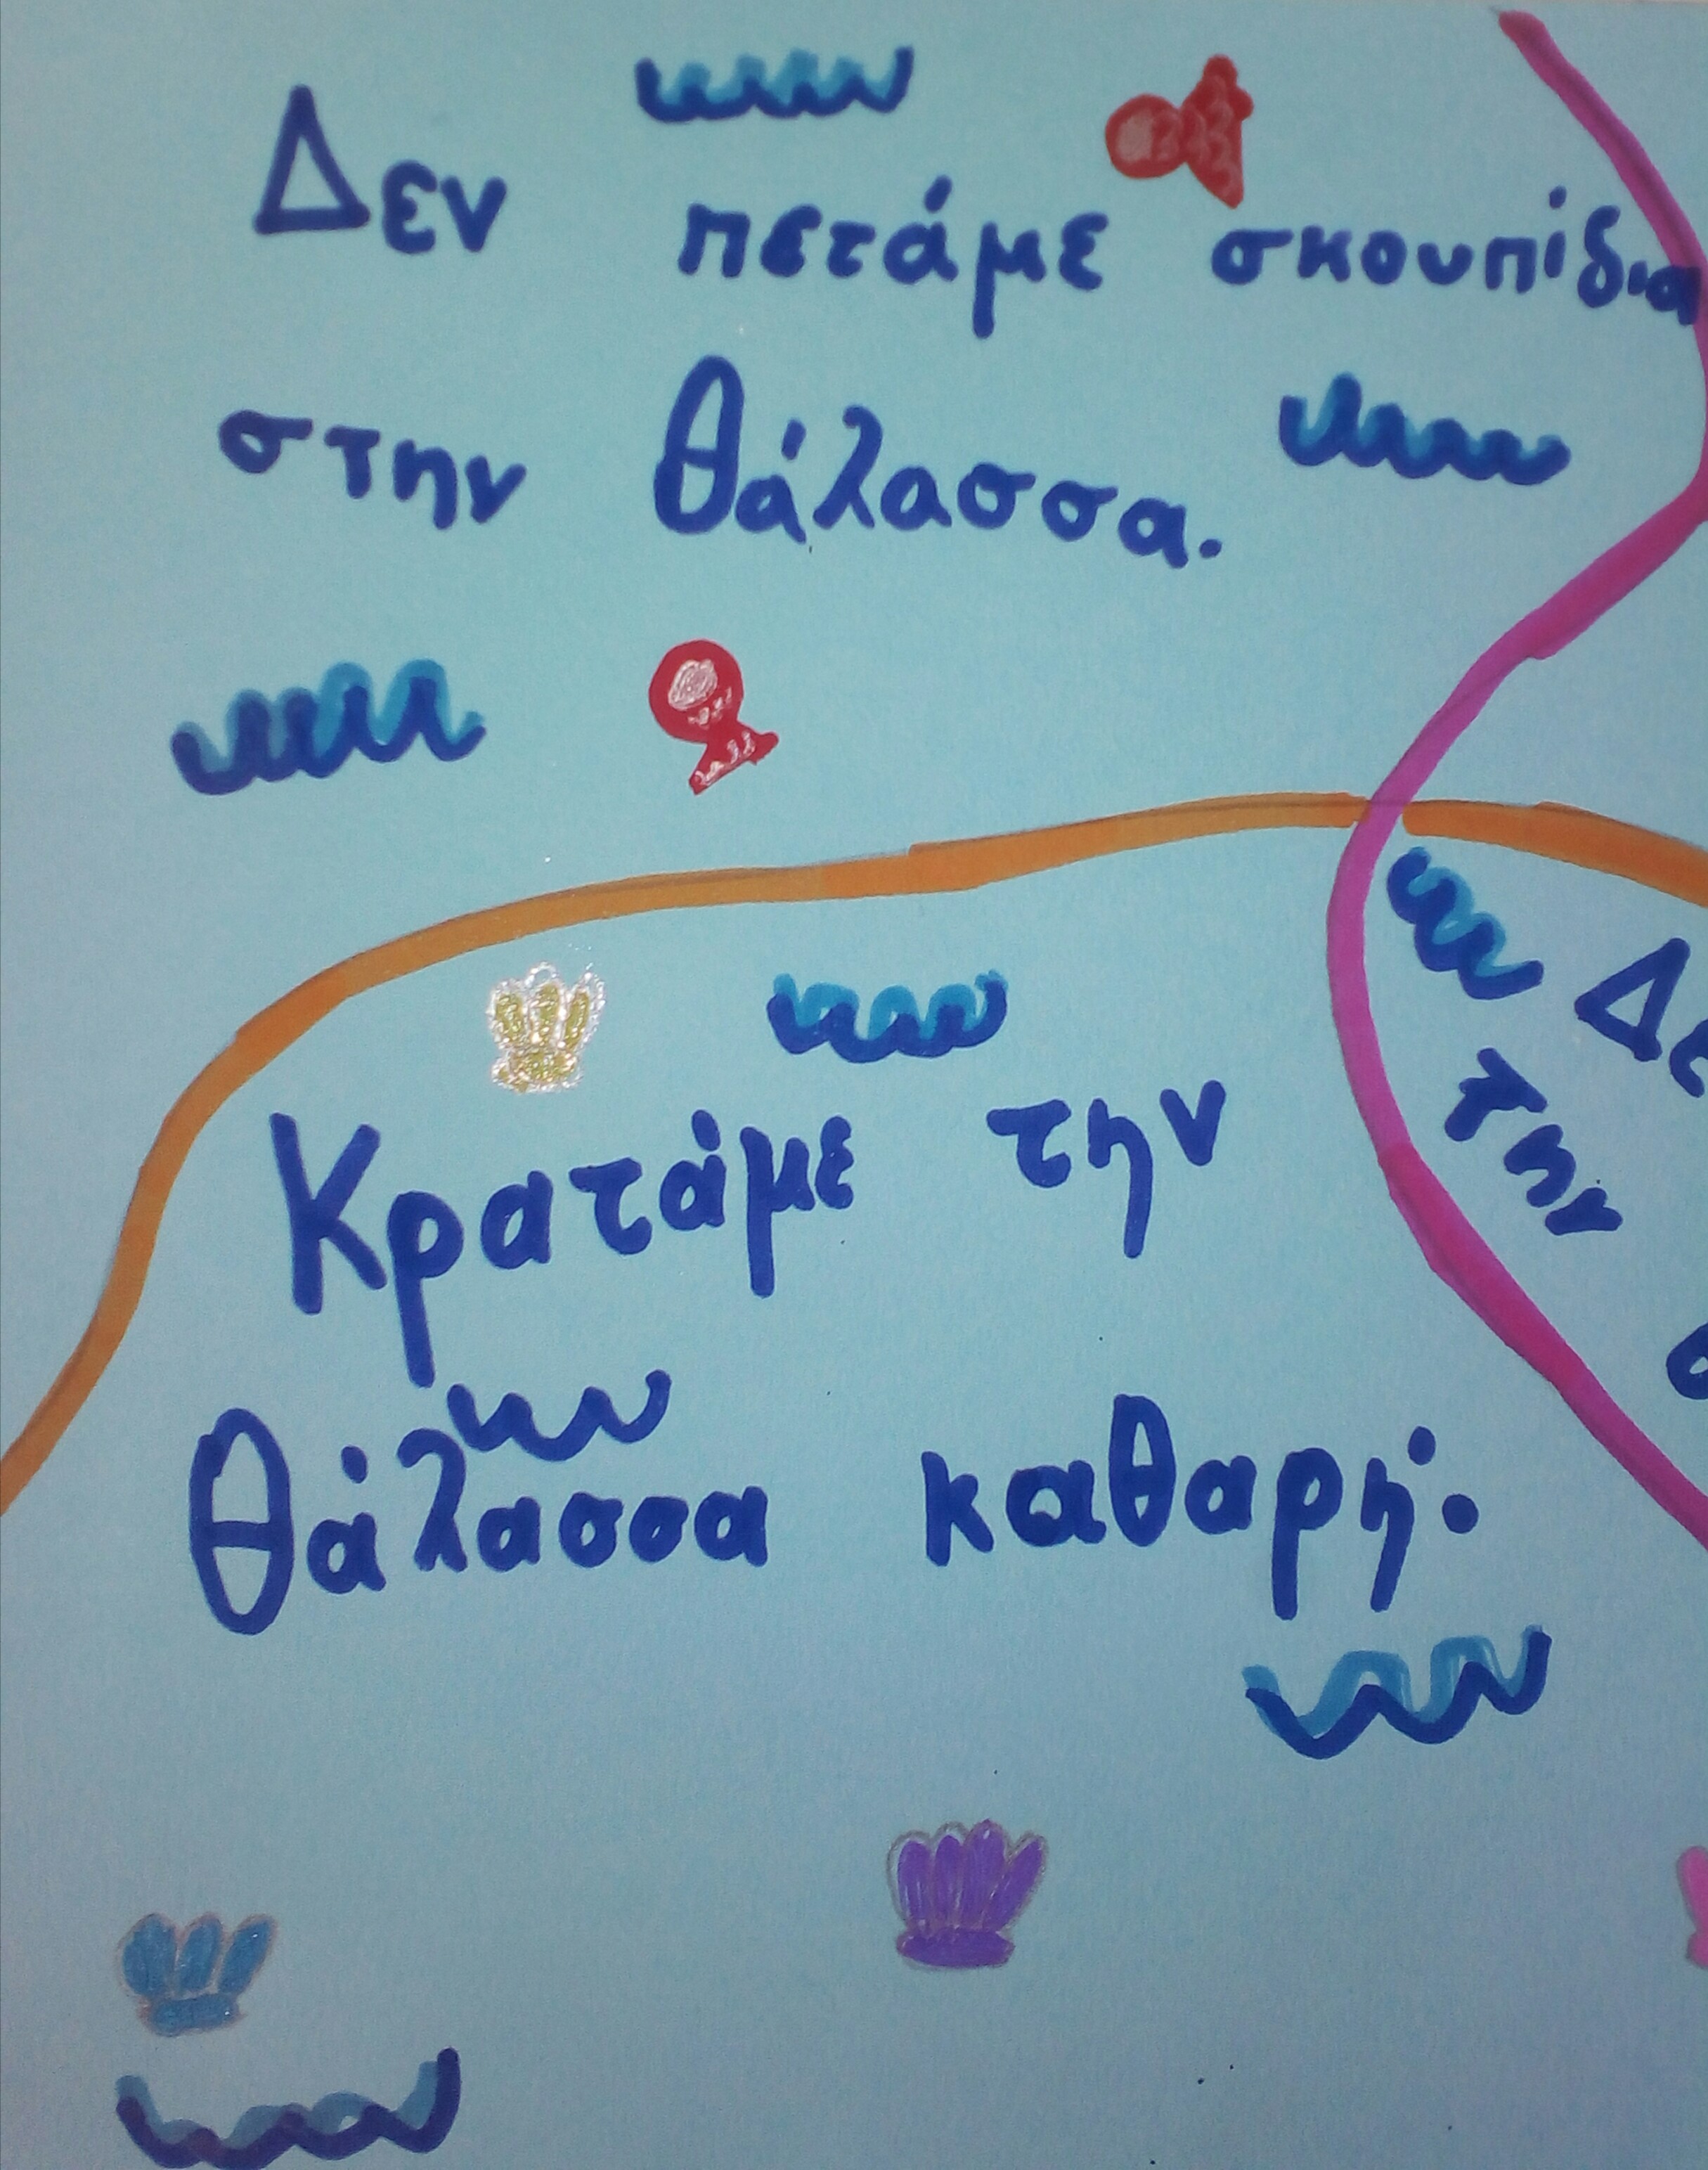 Δεν πετάμε σκουπίδια
στην θάλασσα.
Κρατάμε την
θάλασσα καθαρή.
την